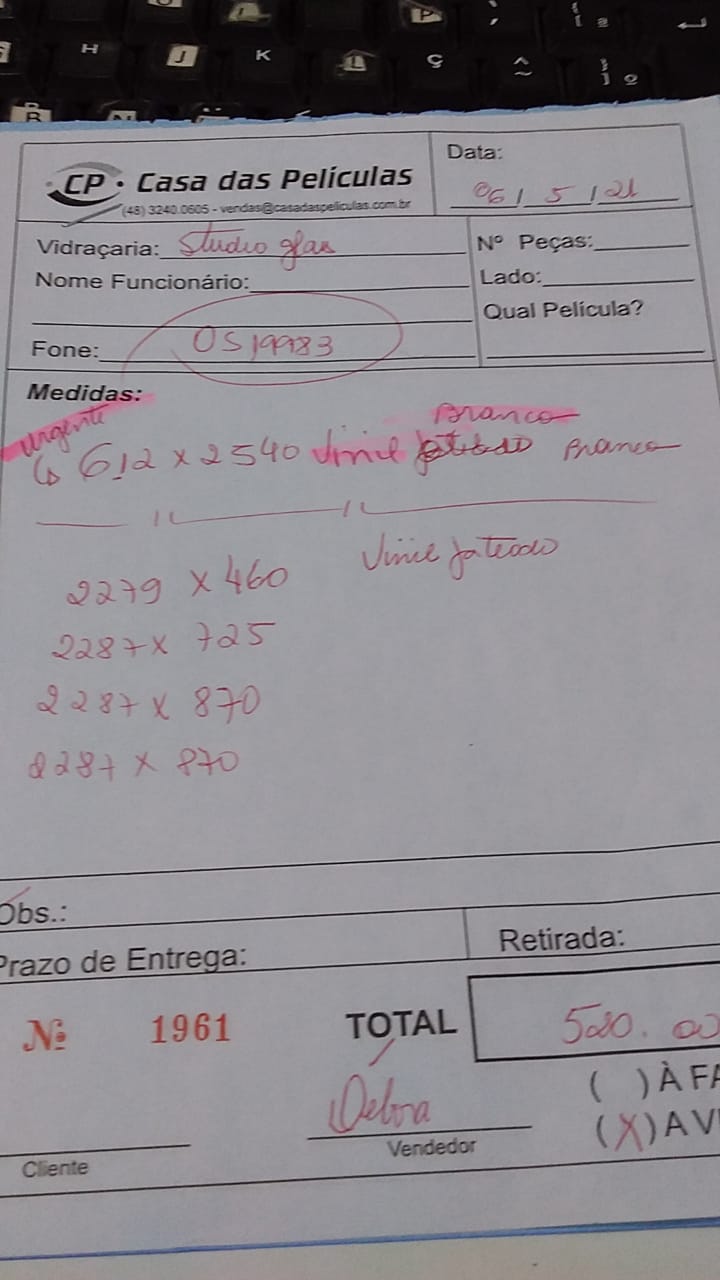 H J K L Ç
CP · Casa das Películas
(48) 3240.0605 - vendas@casadaspeliculas.com.br
Data:
06 / 5 / 21
Vidraçaria: Studio glas
Nº Peças:
Nome Funcionário:
Lado:
Qual Película?
Fone: OS 19983
Medidas:
urgente
Branco
612 x 2540 Vinil jateado Branco
2279 x 460 Vinil jateado
2287 x 725
2287 x 870
2287 x 870
Obs.:
Prazo de Entrega:
Retirada:
Nº 1961
TOTAL 520.00
( ) À FA
Debora
(X) A VI
Vendedor
Cliente